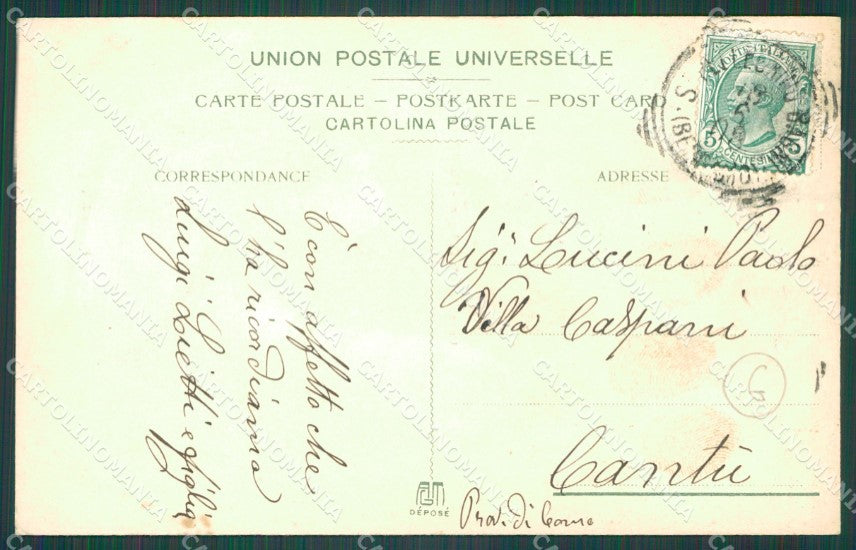 UNION POSTALE UNIVERSELLE
CARTE POSTALE – POSTKARTE – POST CARD
CARTOLINA POSTALE
CORRESPONDANCE
È con affetto che
l'ha ricordiamo
Luigi Lietti e figlia
ADRESSE
Sig. Lucini Paolo
Villa Caspani
Cantù
Prov. di Como
DÉPOSÉ
POSTE ITALIANE
5 5
CENTESIMI
CARTOLINOMANIA